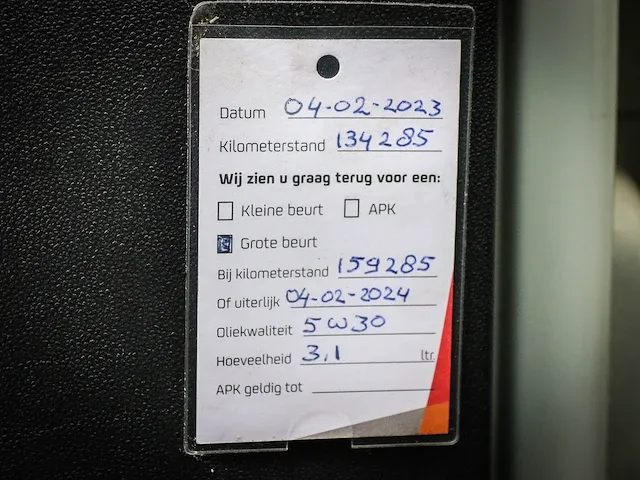 Datum 04-02-2023
Kilometerstand 134285
Wij zien u graag terug voor een:
Kleine beurt APK
Grote beurt
Bij kilometerstand 159285
Of uiterlijk 04-02-2024
Oliekwaliteit 5W30
Hoeveelheid 3.1 ltr.
APK geldig tot